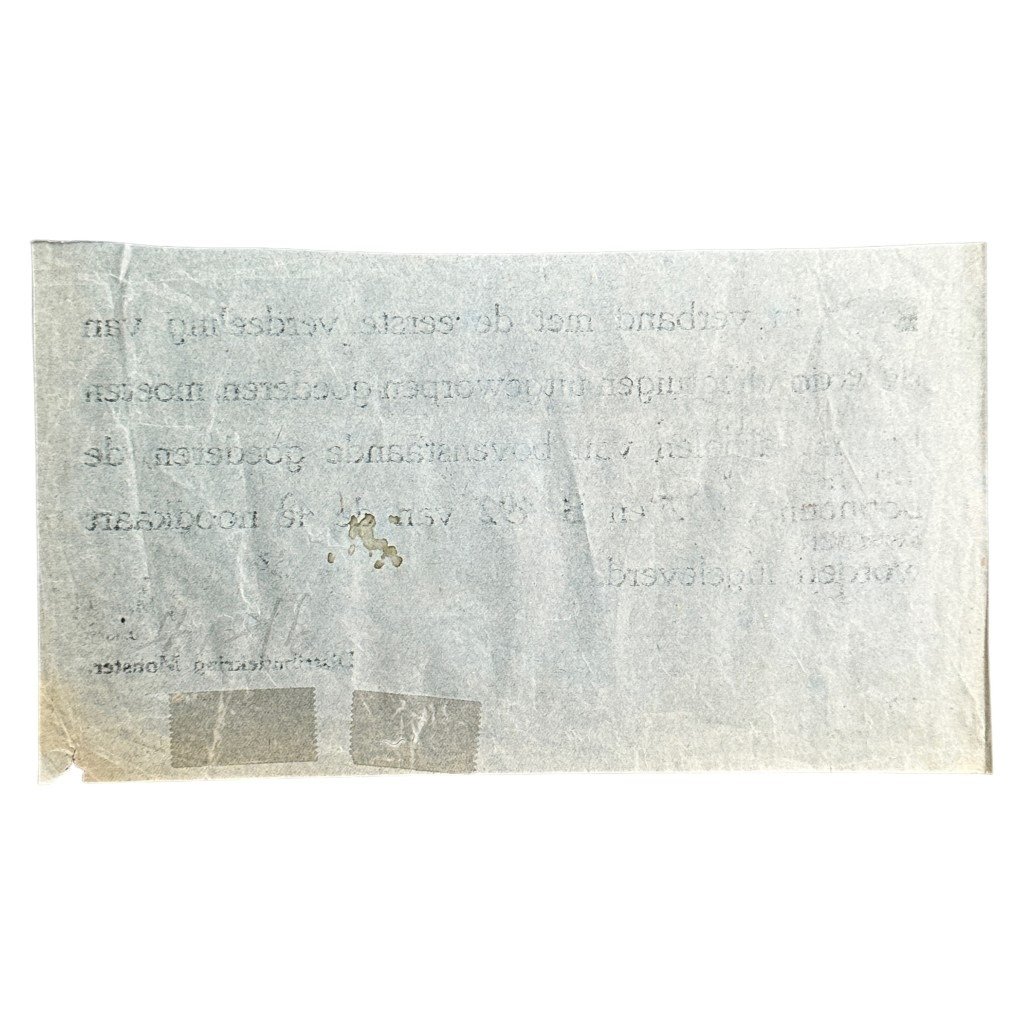 In verband met de eerste verdeeling van
de uit vliegtuigen uitgeworpen goederen, moeten
bij het afhalen van bovenstaande goederen, de
bonnen en B 92 van de 1e noodkaart
worden ingeleverd.
Distributiekring Monster.